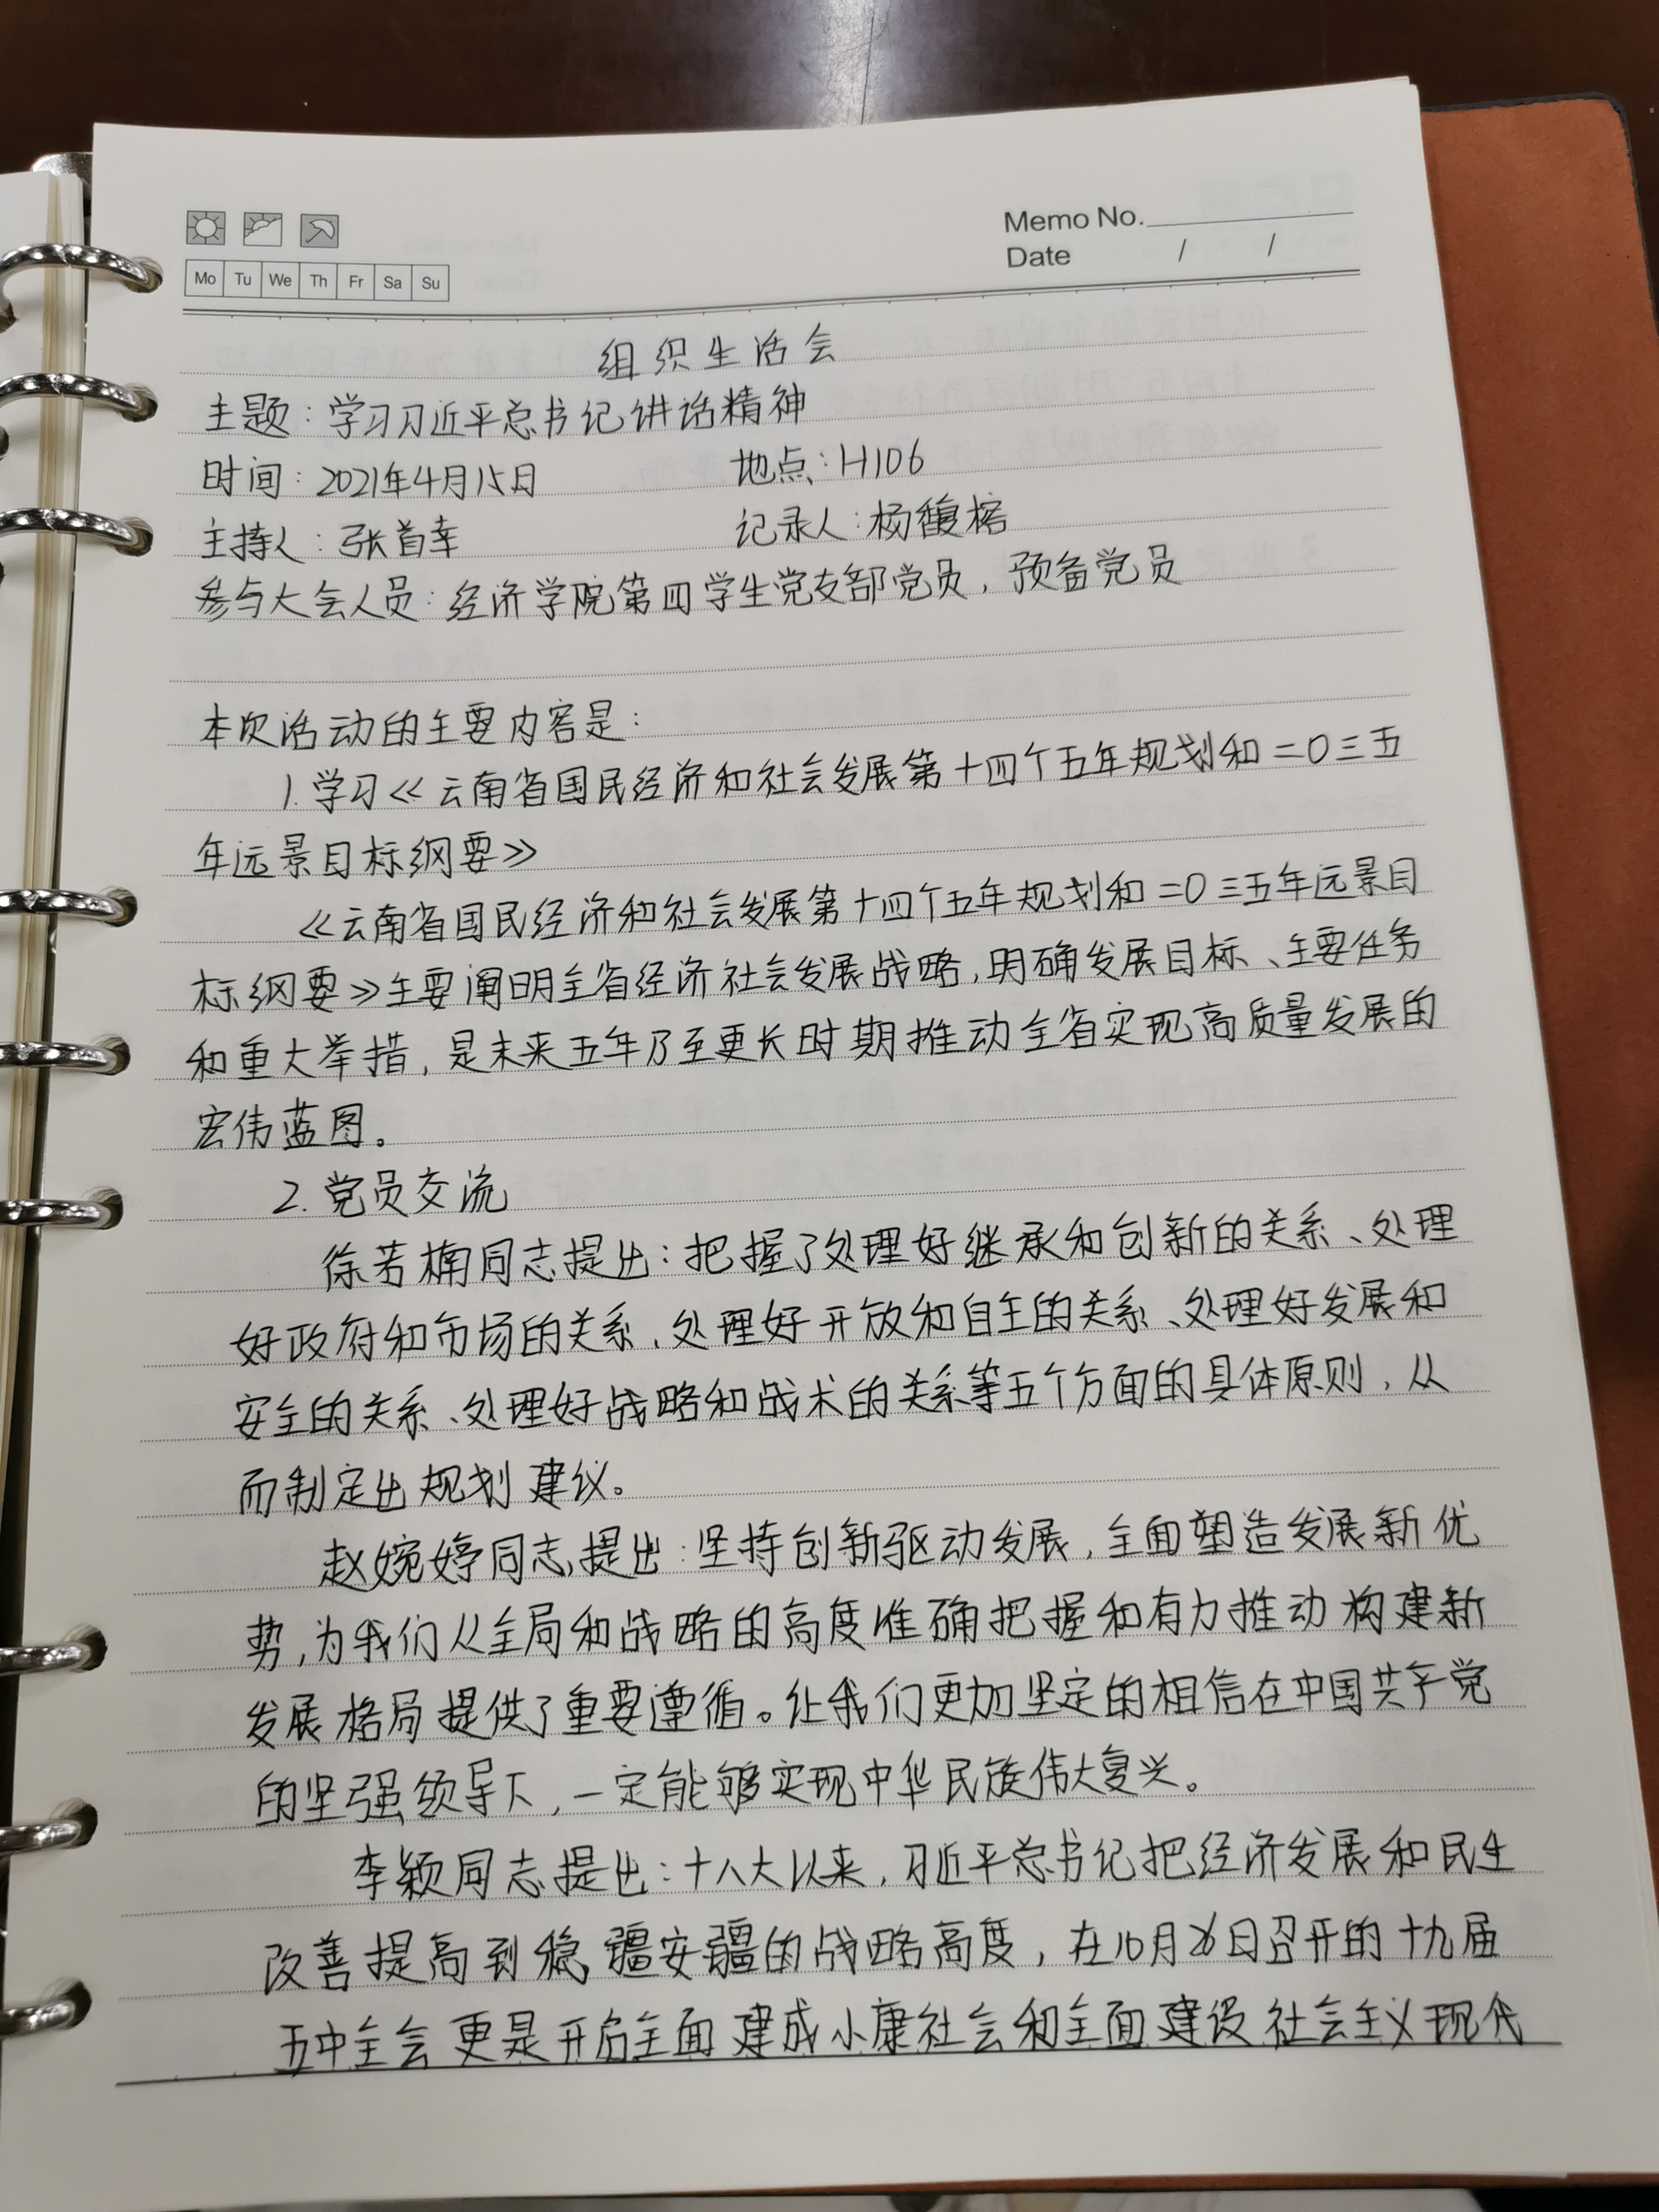 Memo No.
Date / /
Mo Tu We Th Fr Sa Su
组织生活会
主题：学习习近平总书记讲话精神
时间：2021年4月15日 地点：H106
主持人：张首幸 记录人：杨馥榕
参与大会人员：经济学院第四学生党支部党员，预备党员
本次活动的主要内容是：
1.学习《云南省国民经济和社会发展第十四个五年规划和二〇三五
年远景目标纲要》
《云南省国民经济和社会发展第十四个五年规划和二〇三五年远景目
标纲要》主要阐明全省经济社会发展战略，明确发展目标、主要任务
和重大举措，是未来五年乃至更长时期推动全省实现高质量发展的
宏伟蓝图。
2.党员交流
徐若楠同志提出：把握了处理好继承和创新的关系、处理
好政府和市场的关系、处理好开放和自主的关系、处理好发展和
安全的关系、处理好战略和战术的关系等五个方面的具体原则，从
而制定出规划建议。
赵婉婷同志提出：坚持创新驱动发展，全面塑造发展新优
势，为我们从全局和战略的高度准确把握和有力推动构建新
发展格局提供了重要遵循。让我们更加坚定的相信在中国共产党
的坚强领导下，一定能够实现中华民族伟大复兴。
李颖同志提出：十八大以来，习近平总书记把经济发展和民生
改善提高到稳疆安疆的战略高度，在10月26日召开的十九届
五中全会更是开启全面建成小康社会和全面建设社会主义现代